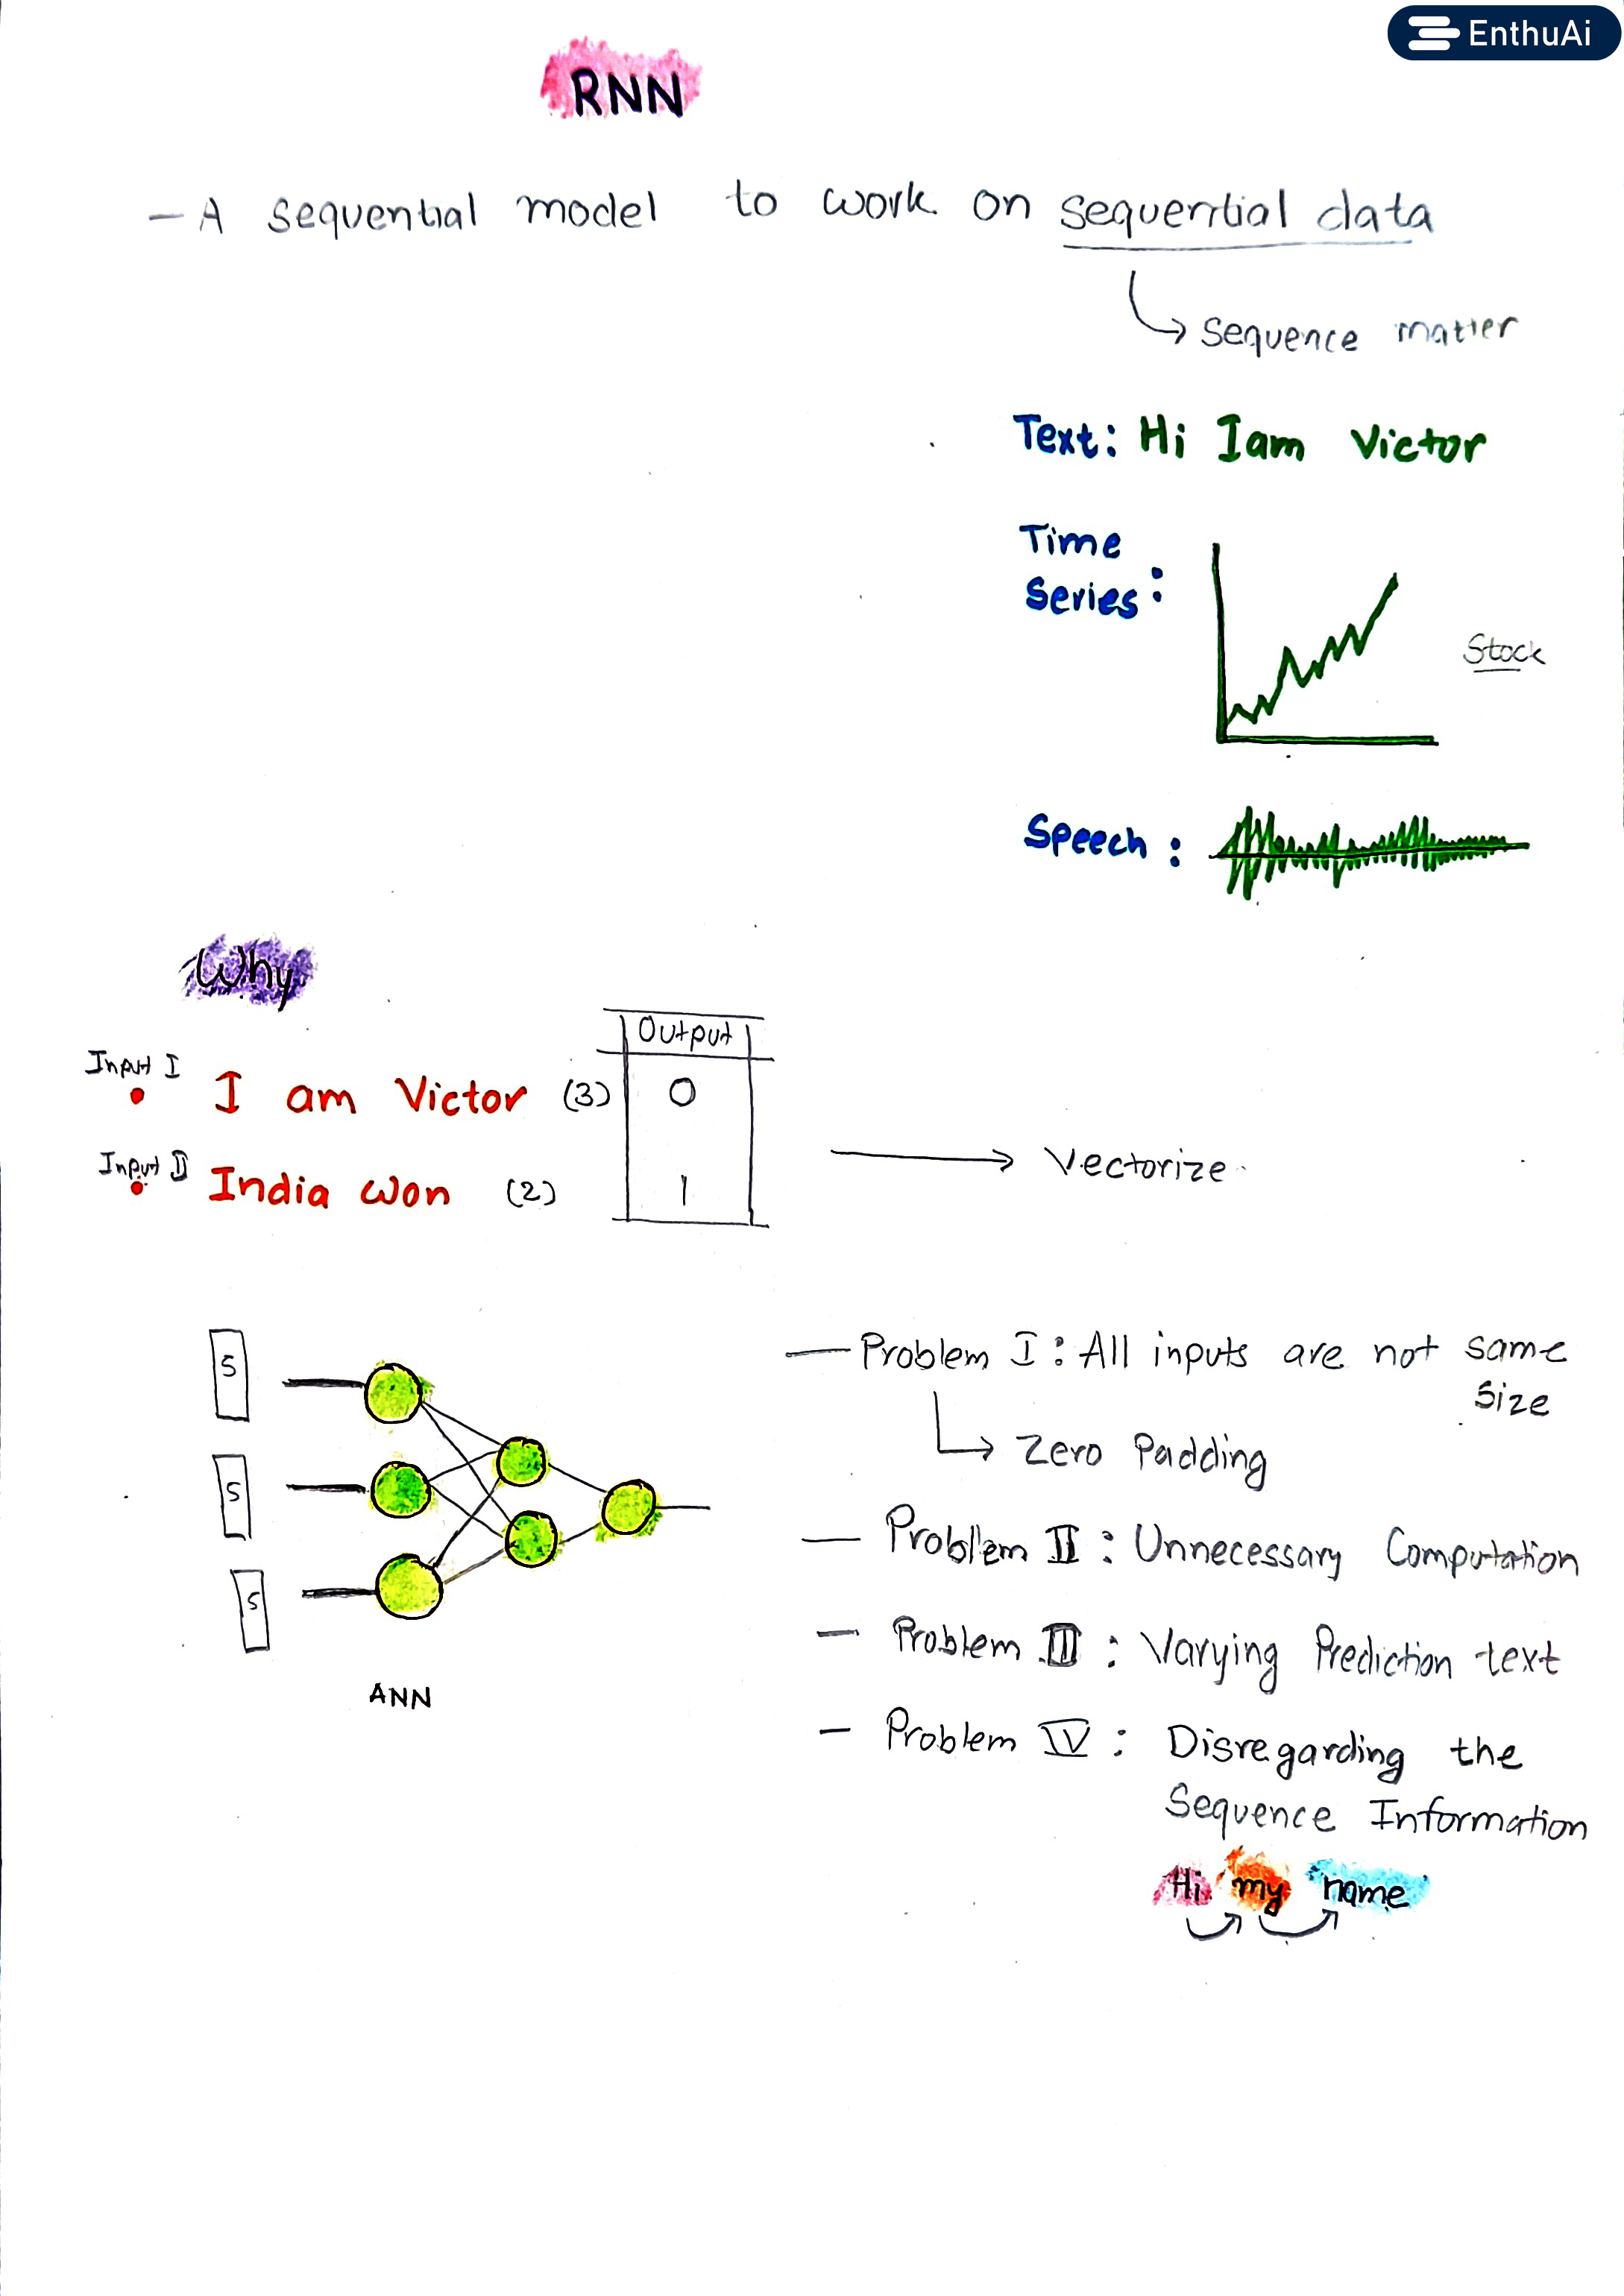 EnthuAi
RNN
— A sequential model to work on sequential data
Sequence matter
Text: Hi Iam Victor
Time
Series:
Stock
Speech :
Why
Output
Input I
I am Victor (3) 0
Input II
India won (2) 1
Vectorize
— Problem I : All inputs are not same
Size
Zero Padding
— Problem II : Unnecessary Computation
— Problem III : Varying Prediction text
— Problem IV : Disregarding the
Sequence Information
Hi my name
5
5
5
ANN